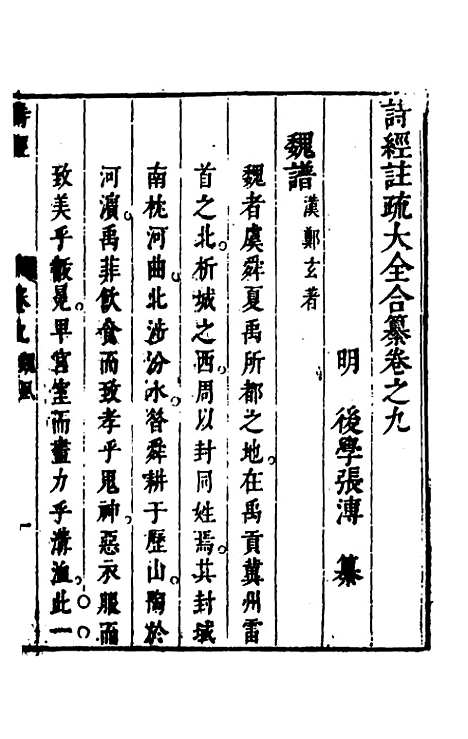 詩經註疏大全合纂卷之九
明 後學張溥 纂
魏譜 漢鄭玄著
魏者虞舜夏禹所都之地在禹貢冀州雷
首之北析城之西周以封同姓焉其封域
南枕河曲北涉汾水昔舜耕于歷山陶於
河濱禹菲飲食而致孝乎鬼神惡衣服而
致美乎黻冕卑宮室而盡力乎溝洫此一
詩經 卷九 魏風 一